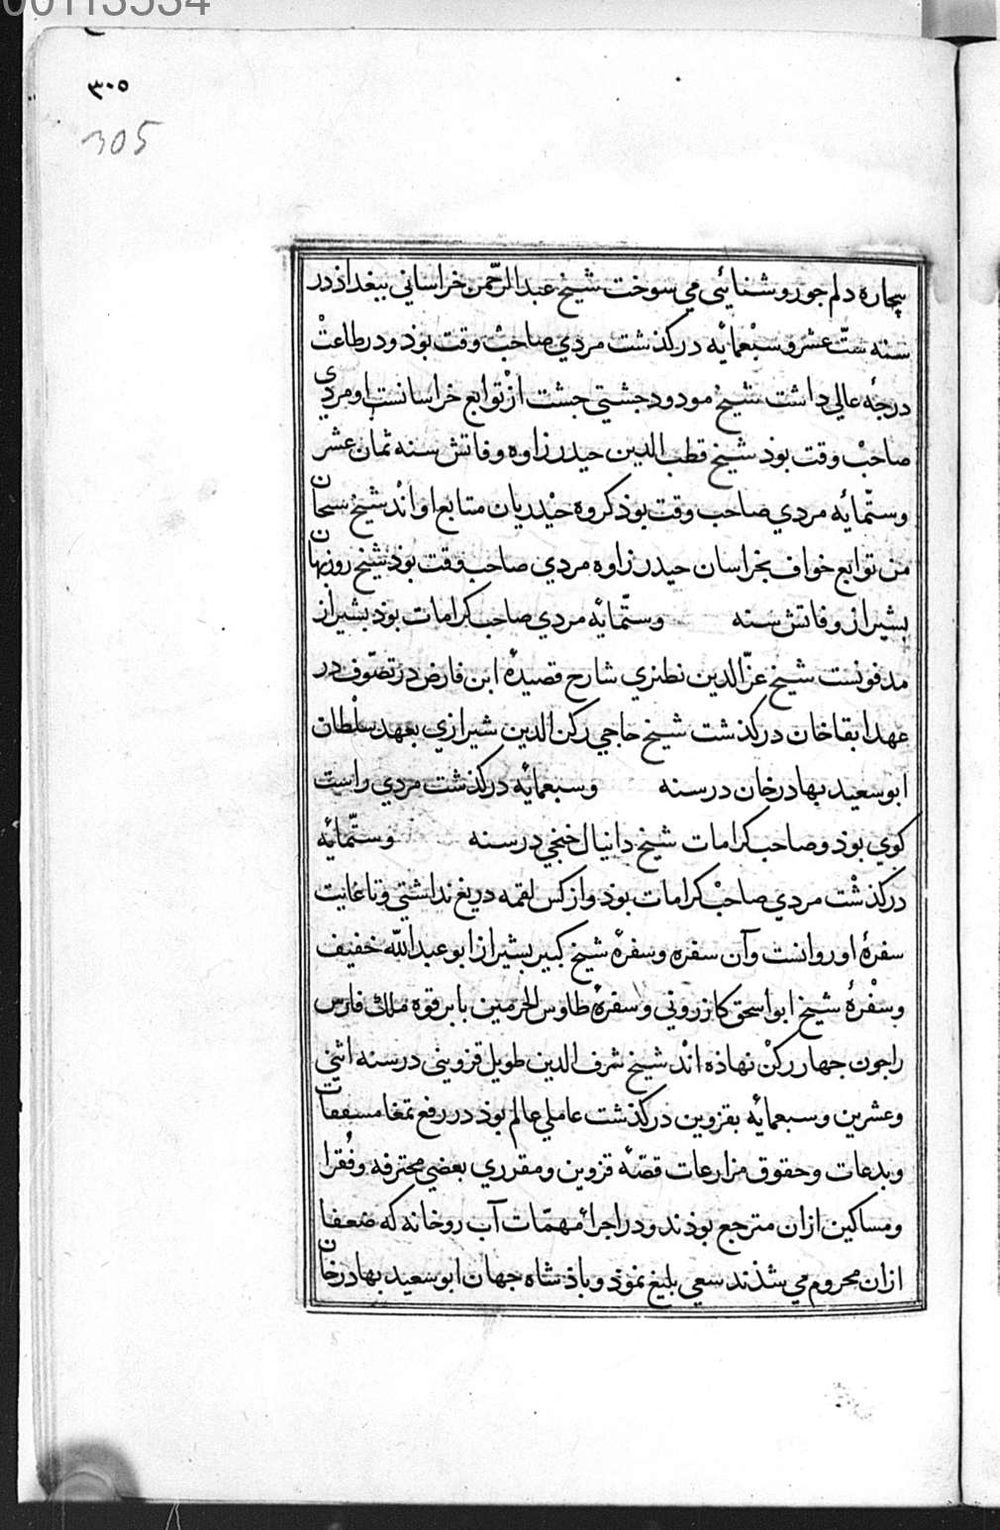 00113534
٣٠٥
305
بیچاره دلم جو روشنائی می سوخت شیخ عبد الرّحمن خراسانی ببغداذ در
سنه ستّ عشر و سبعمایه در کذشت مردی صاحب وقت بوذ و در طاعت
درجهٔ عالی داشت شیخ مودود جشتی جشت از توابع خراسانست او مردی
صاحب وقت بوذ شیخ قطب الدین حیدر زاوه وفاتش سنه ثمان عشر
و ستّمایه مردی صاحب وقت بوذ کروه حیدریان متابع او اند شیخ سنجان
من توابع خواف بخراسان حیدر زاوه مردی صاحب وقت بوذ شیخ روزبهان
بشیراز وفاتش سنه و ستّمایه مردی صاحب کرامات بوذ بشیراز
مدفونست شیخ عزّ الدین نطنزی شارح قصیدهٔ ابن فارض در تصوّف در
عهد ابقا خان در کذشت شیخ حاجی رکن الدین شیرازی بعهد سلطان
ابو سعید بهادر خان در سنه و سبعمایه در کذشت مردی راست
کوی بوذ و صاحب کرامات شیخ دانیال خنجی در سنه و ستّمایه
در کذشت مردی صاحب کرامات بوذ و از کس لقمه دریغ نداشتی و تا غایت
سفرهٔ او روانست و آن سفره و سفرهٔ شیخ کبیر بشیراز ابو عبد الله خفیف
و سفرهٔ شیخ ابو اسحق کازرونی و سفرهٔ طاوس الحرمین بابرقوه ملک فارس
را جون جهار رکن نهاذه اند شیخ شرف الدین طویل قزوینی در سنه اثنی
و عشرین و سبعمایه بقزوین در کذشت عاملی عالم بوذ در رفع تمغا مسقفات
و بدعات و حقوق مزارعات قصبهٔ قزوین و مقرری بعضی محترفه و فقرا
و مساکین از ان مترجع بوذند و در اجراء مهمّات آب روخانه که ضعفا
از ان محروم می شذند سعی بلیغ نموذ و باذشاه جهان ابو سعید بهادر خان